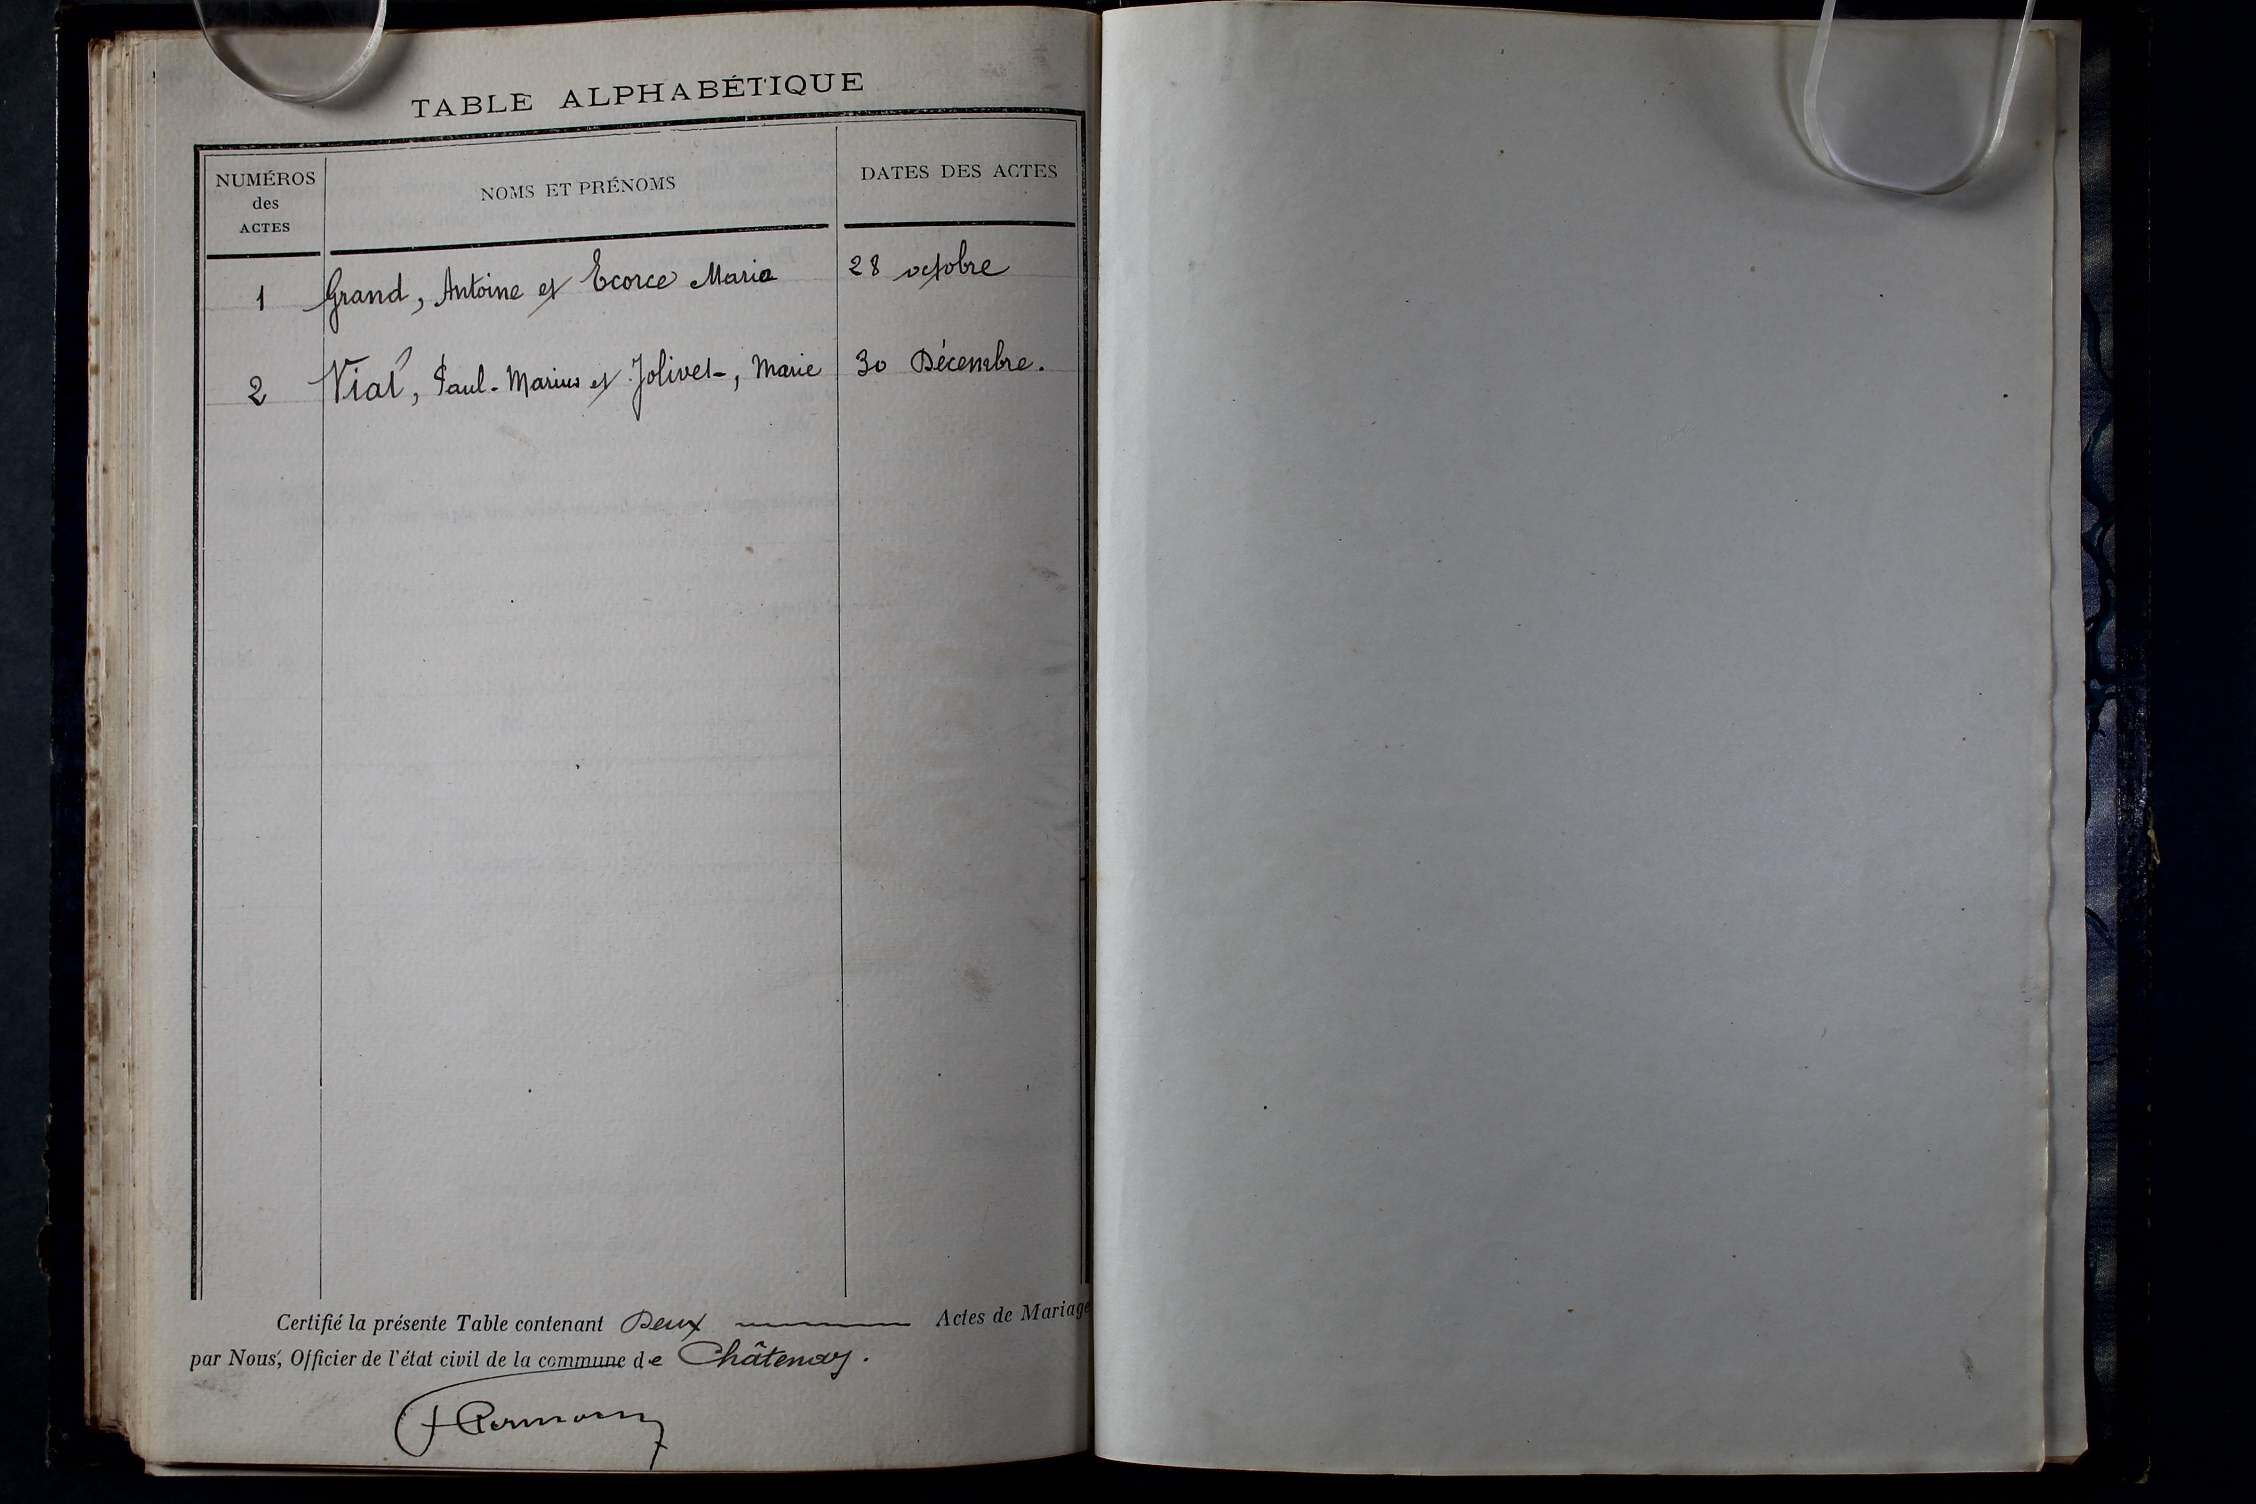 TABLE ALPHABÉTIQUE
NUMÉROS
des
ACTES
NOMS ET PRÉNOMS
DATES DES ACTES
1 Grand, Antoine et Ecorce Maria 28 octobre
2 Vial, Paul-Marius et Jolivet, Marie 30 Décembre.
Certifié la présente Table contenant Deux Actes de Mariage
par Nous, Officier de l'état civil de la commune de Châtenay.